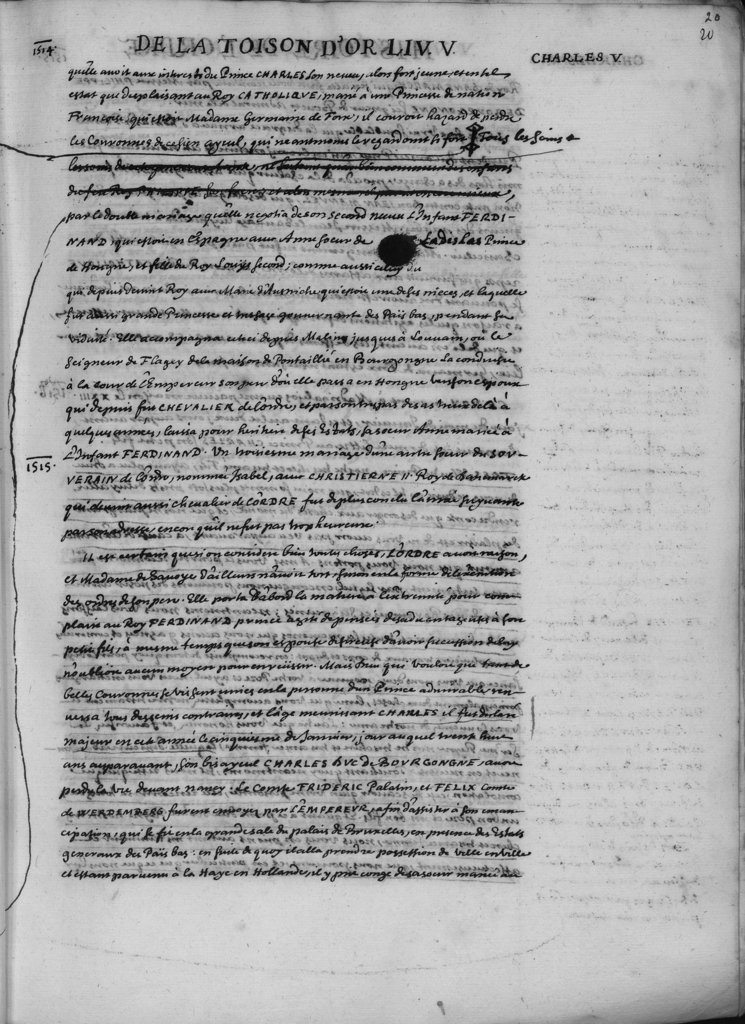 20
20
1514. DE LA TOISON D'OR LIV. V. CHARLES V.
quelle avoit aux interests du Prince CHARLES son neveu, alors fort jeune, et en tel
estat que desplaisant au Roy CATHOLIQUE, marié à une Princesse de nation
Françoise, qui estoit Madame Germaine de Foix, il couroit hazard de perdre
les Couronnes de celuy ayeul, qui neantmoins le regardoit Tous les soins
par le double mariage qu'elle negotia de son second neveu L'Infant FERDI-
NAND, qui estoit en Espagne avec Anne soeur de Ladislas Prince
de Hongrie, et fille du Roy Louys second; comme aussi celuy du
qui depuis devint Roy avec Marie d'Austriche, qui estoit une de ses nieces, et laquelle
fut grande Princesse et mesme gouvernante des Païs bas, pendant sa
viduité. Elle accompagna celleci depuis Malines jusques à Louvain, où le
Seigneur de Flagey de la maison de Pontaillié en Bourgongne la conduisit
à la cour de l'Empereur son pere d'où elle passa en Hongrie vers son espoux
qui depuis fut CHEVALIER de l'ordre, et par son trespas
quelques années, laissa pour heritiere de ses estats, sa soeur Anne mariée à
1515. L'Infant FERDINAND. Un troisiesme mariage d'une autre soeur du SOU-
VERAIN de l'ordre, nommée Isabel, avec CHRISTIERNE II. Roy de Danemarck
qui devint aussi chevalier de L'ORDRE fut de plus conclu l'année suyvante
par son adresse, encor qu'il ne fut pas trop heureux.
IL est certain que si on considere bien toutes choses, L'ORDRE avoit raison,
et Madame de Savoye d'ailleurs n'avoit tort sinon en la forme
des ordres de son pere. Elle porta d'abord la matiere à l'extremité pour com-
plaire au Roy FERDINAND prince agité de pensées desadvantageuses à son
petit fils, à mesme temps que son espouse desireuse d'avoir succession de luy
n'oublioit aucun moyen pour en reüssir. Mais Dieu qui vouloit que tant de
belles Couronnes se vissent unies en la personne d'un Prince admirable, ren-
versa tous desseins contraires, et l'âge meurissant CHARLES il fut declaré
majeur en cest année le cinquiesme de Janvier, jour auquel trente huit
ans auparavant, son bisayeul CHARLES DUC de BOURGONGNE, avoit
perdu la vie devant Nancy. Le Comte FRIDERIC Palatin, et FELIX Comte
de WERDEMBERG furent envoyez par L'EMPEREUR, afin d'assister à son eman-
cipation, qui se fit en la grande sale du palais de Bruxelles, en presence des Estats
generaux des Païs bas: en suite de quoy il alla prendre possession de ville en ville
et estant parvenu à la Haye en Hollande, il y prit congé de sa soeur mariée au